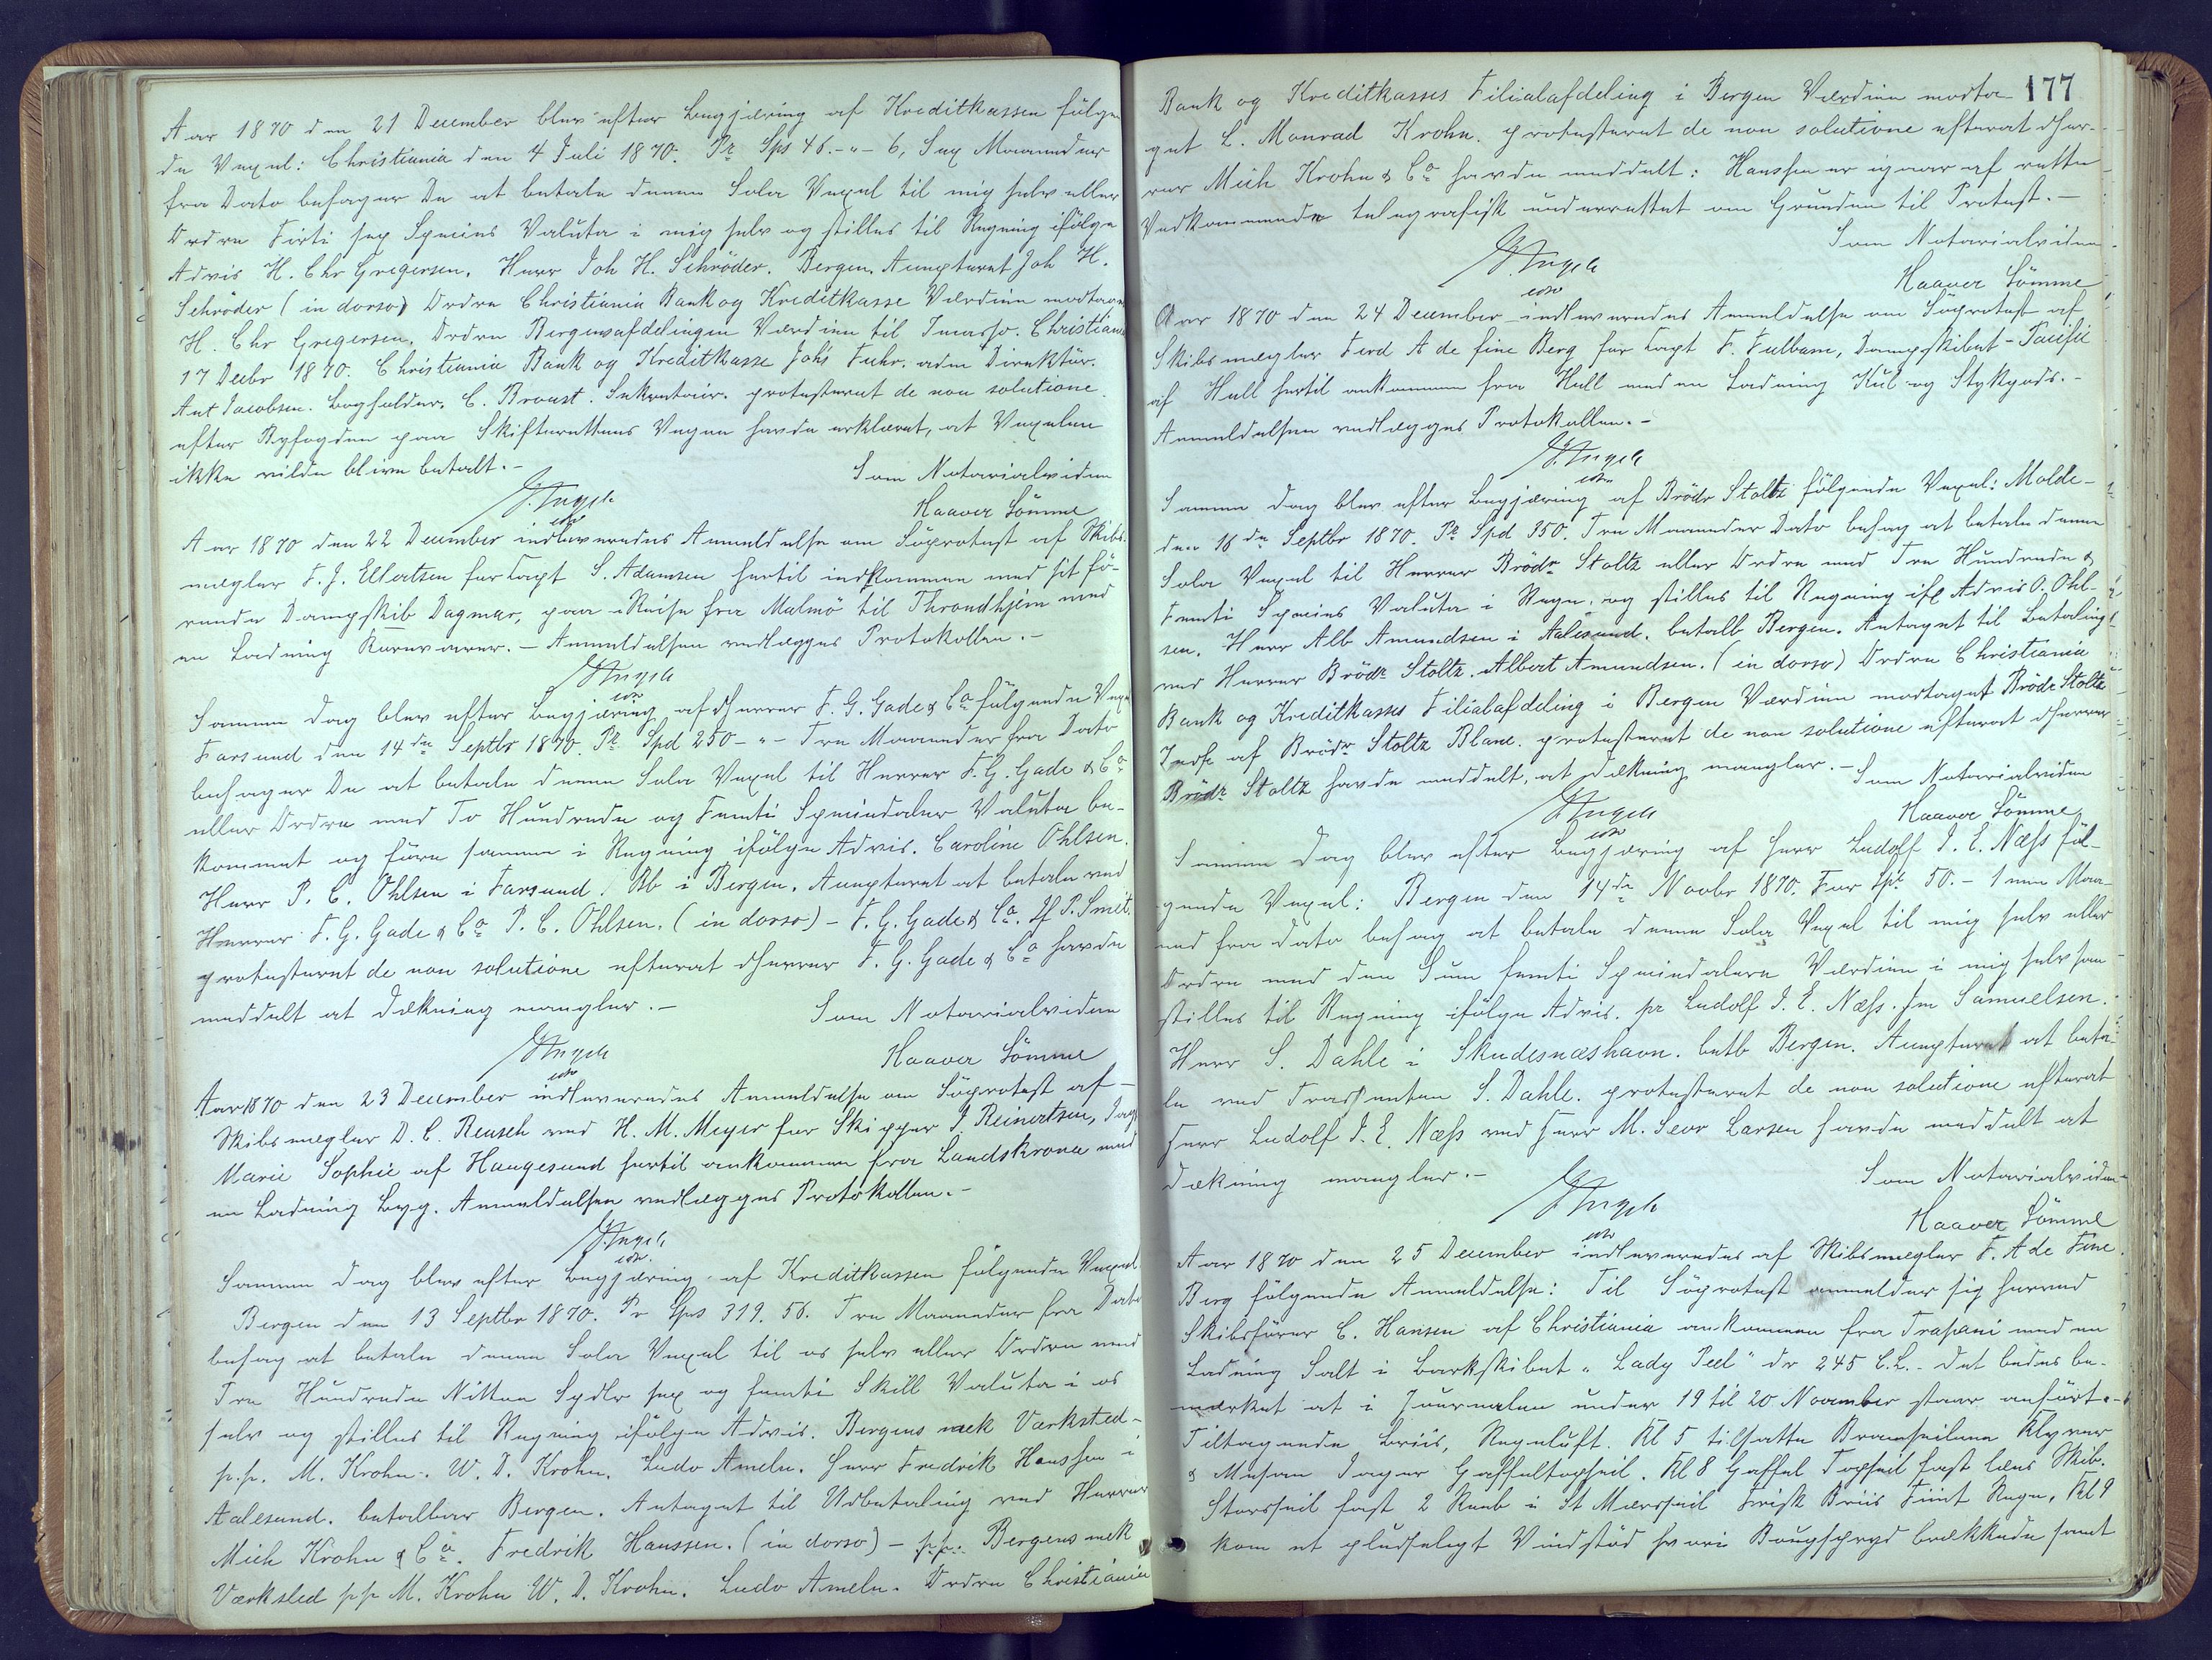 Aar 1870 den 21 December blev efter Begjæring af Kreditkassen følgen
de Vexel: Christiania den 4 Juli 1870. Pr Sps 46.-„- 6, Sex Maaneder
fra Dato behager De at betale denne Sola Vexel til mig selv eller
Ordre Firti sex Species Valuta i mig selv og stilles til Regning ifølge
Advis H. Chr Gregersen. Herr Joh H. Schröder. Bergen. Accepteret Joh H.
Schröder (in dorso) Ordre Christiania Bank og Kreditkasse Værdien modtaget
H. Chr Gregersen. Ordre Bergensafdelingen Værdien til Incasso. Christiania
17 Decbr 1870. Christiania Bank og Kreditkasse Johs Fuhr. adm Direktör.
Ant Jacobsen. Bogholder. C. Broust. Sekretair. protesteret de non solutione
efter Byfogden paa Skifterettens Vegne havde erklæret, at Vexelen
ikke vilde blive betalt.-
Som Notarialvidne
Haaver Sömme
Aar 1870 den 22 December indleveredes Anmeldelse om Söprotest af Skibs-
mægler F. J. Ellertsen for Capt S. Adamsen hertil indkommen med sit fö-
rende Dampskib Dagmar, paa Reise fra Malmö til Throndhjem med
en Ladning Kornvarer.- Anmeldelsen vedlægges Protokollen.-
Samme Dag blev efter Begjæring af Dherrer F. G. Gade & Co følgende Vexel
Farsund den 14de Septbr 1870. Pr Spd 250-„- Tre Maaneder fra Dato
behager De at betale denne Sola Vexel til Herrer F. G. Gade & Co
eller Ordre med To Hundrede og Femti Speciedaler Valuta be-
kommet og före samme i Regning ifølge Advis. Caroline Ohlsen.
Herr P. C. Ohlsen i Farsund. Bb i Bergen. Accepteret at betale ved
Herrer F. G. Gade & Co P. C. Ohlsen. (in dorso) - F. G. Gade & Co. Jf P. Smit.
protesteret de non solutione efterat Dherrer F. G. Gade & Co havde
meddelt at Dækning mangler.-
Som Notarialvidne
Haaver Sömme
Aar 1870 den 23 December indleveredes Anmeldelse om Söprotest af
Skibsmægler D. C. Reusch ved H. M. Meyer for Skipper J. Reinertsen, Jagt
Marie Sophie af Haugesund hertil ankommen fra Landskrona med
en Ladning Byg. Anmeldelsen vedlægges Protokollen.-
Samme Dag blev efter Begjæring af Kreditkassen følgende Vexel
Bergen den 13 Septbr 1870. Pr Sps 319. 56. Tre Maaneder fra Dato
behag at betale denne Sola Vexel til os selv eller Ordre med
Tre Hundrede Nitten Spdlr sex og femti Skill Valuta i os
selv og stilles til Regning ifølge Advis. Bergens mek Værksted-
p.p. M. Krohn. W. D. Krohn. Ludv Ameln. Herr Fredrik Hanssen i
Aalesund. betalbar Bergen. Antaget til Udbetaling ved Herrer
Mich Krohn & Co. Fredrik Hanssen. (in dorso) - p.p. Bergens mek
Værksted pp M. Krohn W. D. Krohn. Ludv Ameln. Ordre Christiania
177
Bank og Kreditkasses Filialafdeling i Bergen Værdien modta-
get L. Monrad Krohn. protesteret de non solutione efterat Dher-
rer Mich Krohn & Co havde meddelt: Hanssen er igaar af rette
Vedkommende telegrafisk underrettet om Grunden til Protest.-
Som Notarialvidne
Haaver Sömme
Aar 1870 den 24 December indleveredes Anmeldelse om Söprotest af
Skibsmægler Ferd A de fine Berg for Capt F. Fulbam, Dampskibet - Pacific
af Hull hertil ankommen fra Hull med en Ladning Kul og Stykgods.-
Anmeldelsen vedlægges Protokollen.-
Samme Dag blev efter Begjæring af Brödr Stoltz følgende Vexel: Molde-
den 16de Septbr 1870. Pr Spd 350. Tre Maaneder Dato behag at betale denne
Sola Vexel til Herrer Brödr Stoltz eller Ordre med Tre Hundrede &
Femti Species Valuta i Regn. og stilles til Regning ifl Advis O. Ohl-
sen. Herr Alb Amundsen i Aalesund. betalb Bergen. Antaget til Betaling
ved Herrer Brödr Stoltz. Albert Amundsen. (in dorso) Ordre Christiania
Bank og Kreditkasses Filialafdeling i Bergen Værdien modtaget Brödr Stoltz
Indf af Brödr Stoltz Blanc. protesteret de non solutione efterat Dherrer
Brödr Stoltz havde meddelt, at Dækning mangler.-
Som Notarialvidne
Haaver Sömme
Samme Dag blev efter Begjæring af Herr Ludolf J. E. Næss föl-
gende Vexel: Bergen den 14de Novbr 1870. For Spd 50.- 1 en Maa-
ned fra Dato behag at betale denne Sola Vexel til mig selv eller
Ordre med den Sum femti Speciedalere Værdien i mig selv som
stilles til Regning ifølge Advis. pr Ludolf J. E. Næss. Jm Samuelsen.
Herr S. Dahle i Skudesnæshavn. betb Bergen. Accepteret at beta-
le ved Trassenten S. Dahle. protesteret de non solutione efterat
Herr Ludolf J. E. Næss ved Herr M. Sevr Larsen havde meddelt at
Dækning mangler.-
Som Notarialvidne
Haaver Sömme
Aar 1870 den 25 December indleveredes af Skibsmægler F. A de Fine
Berg følgende Anmeldelse: Til Söprotest anmelder sig herved
Skibsförer C. Hansen af Christiania ankommen fra Trapani med en
Ladning Salt i Barkskibet „Lady Peel" dr 245 C.L.- Det bedes be-
mærket at i Journalen under 19 til 20 November staar anfört.-
Tiltagende Briis, Regnluft. Kl 5 tilsatte Bramseilene Klyver
& Mesan Jager Gaffeltopseil. Kl 8 Gaffel Topseil fast læns Skib.
Storseil fast 2 Reeb i St Mærsseil Frisk Briis Fiint Regn. Kl 9
kom et pludseligt Vindstöd hvori Bougspryd brækkede samt